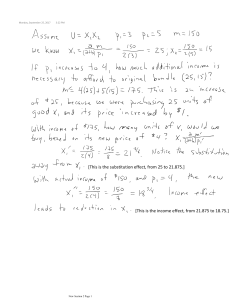 Assume U = X₁X₂ p₁=3 p₂=5 m=150
we know X₁ = 150/2(3) = 25, X₂ = 150/2(5) = 15
If p₁ increases to 4, how much additional income is
necessary to afford to original bundle (25, 15)?
4(25)+5(15) = 175. This is an increase
of $25, because we were purchasing 25 units of
good X₁ and its price increased by $1.
With income of $175, how many units of X₁ would we
buy, based on its new price of $4?
X₁' = 175/2(4) = 175/8 = 21 7/8 Notice the substitution
away from X₁ [This is the substitution effect, from 25 to 21.875.]
with actual income of $150, and p₁ = 4, the new
X₁'' = 150/2(4) = 150/8 = 18 3/4 Income effect
leads to reduction in X₁ [This is the income effect, from 21.875 to 18.75.]